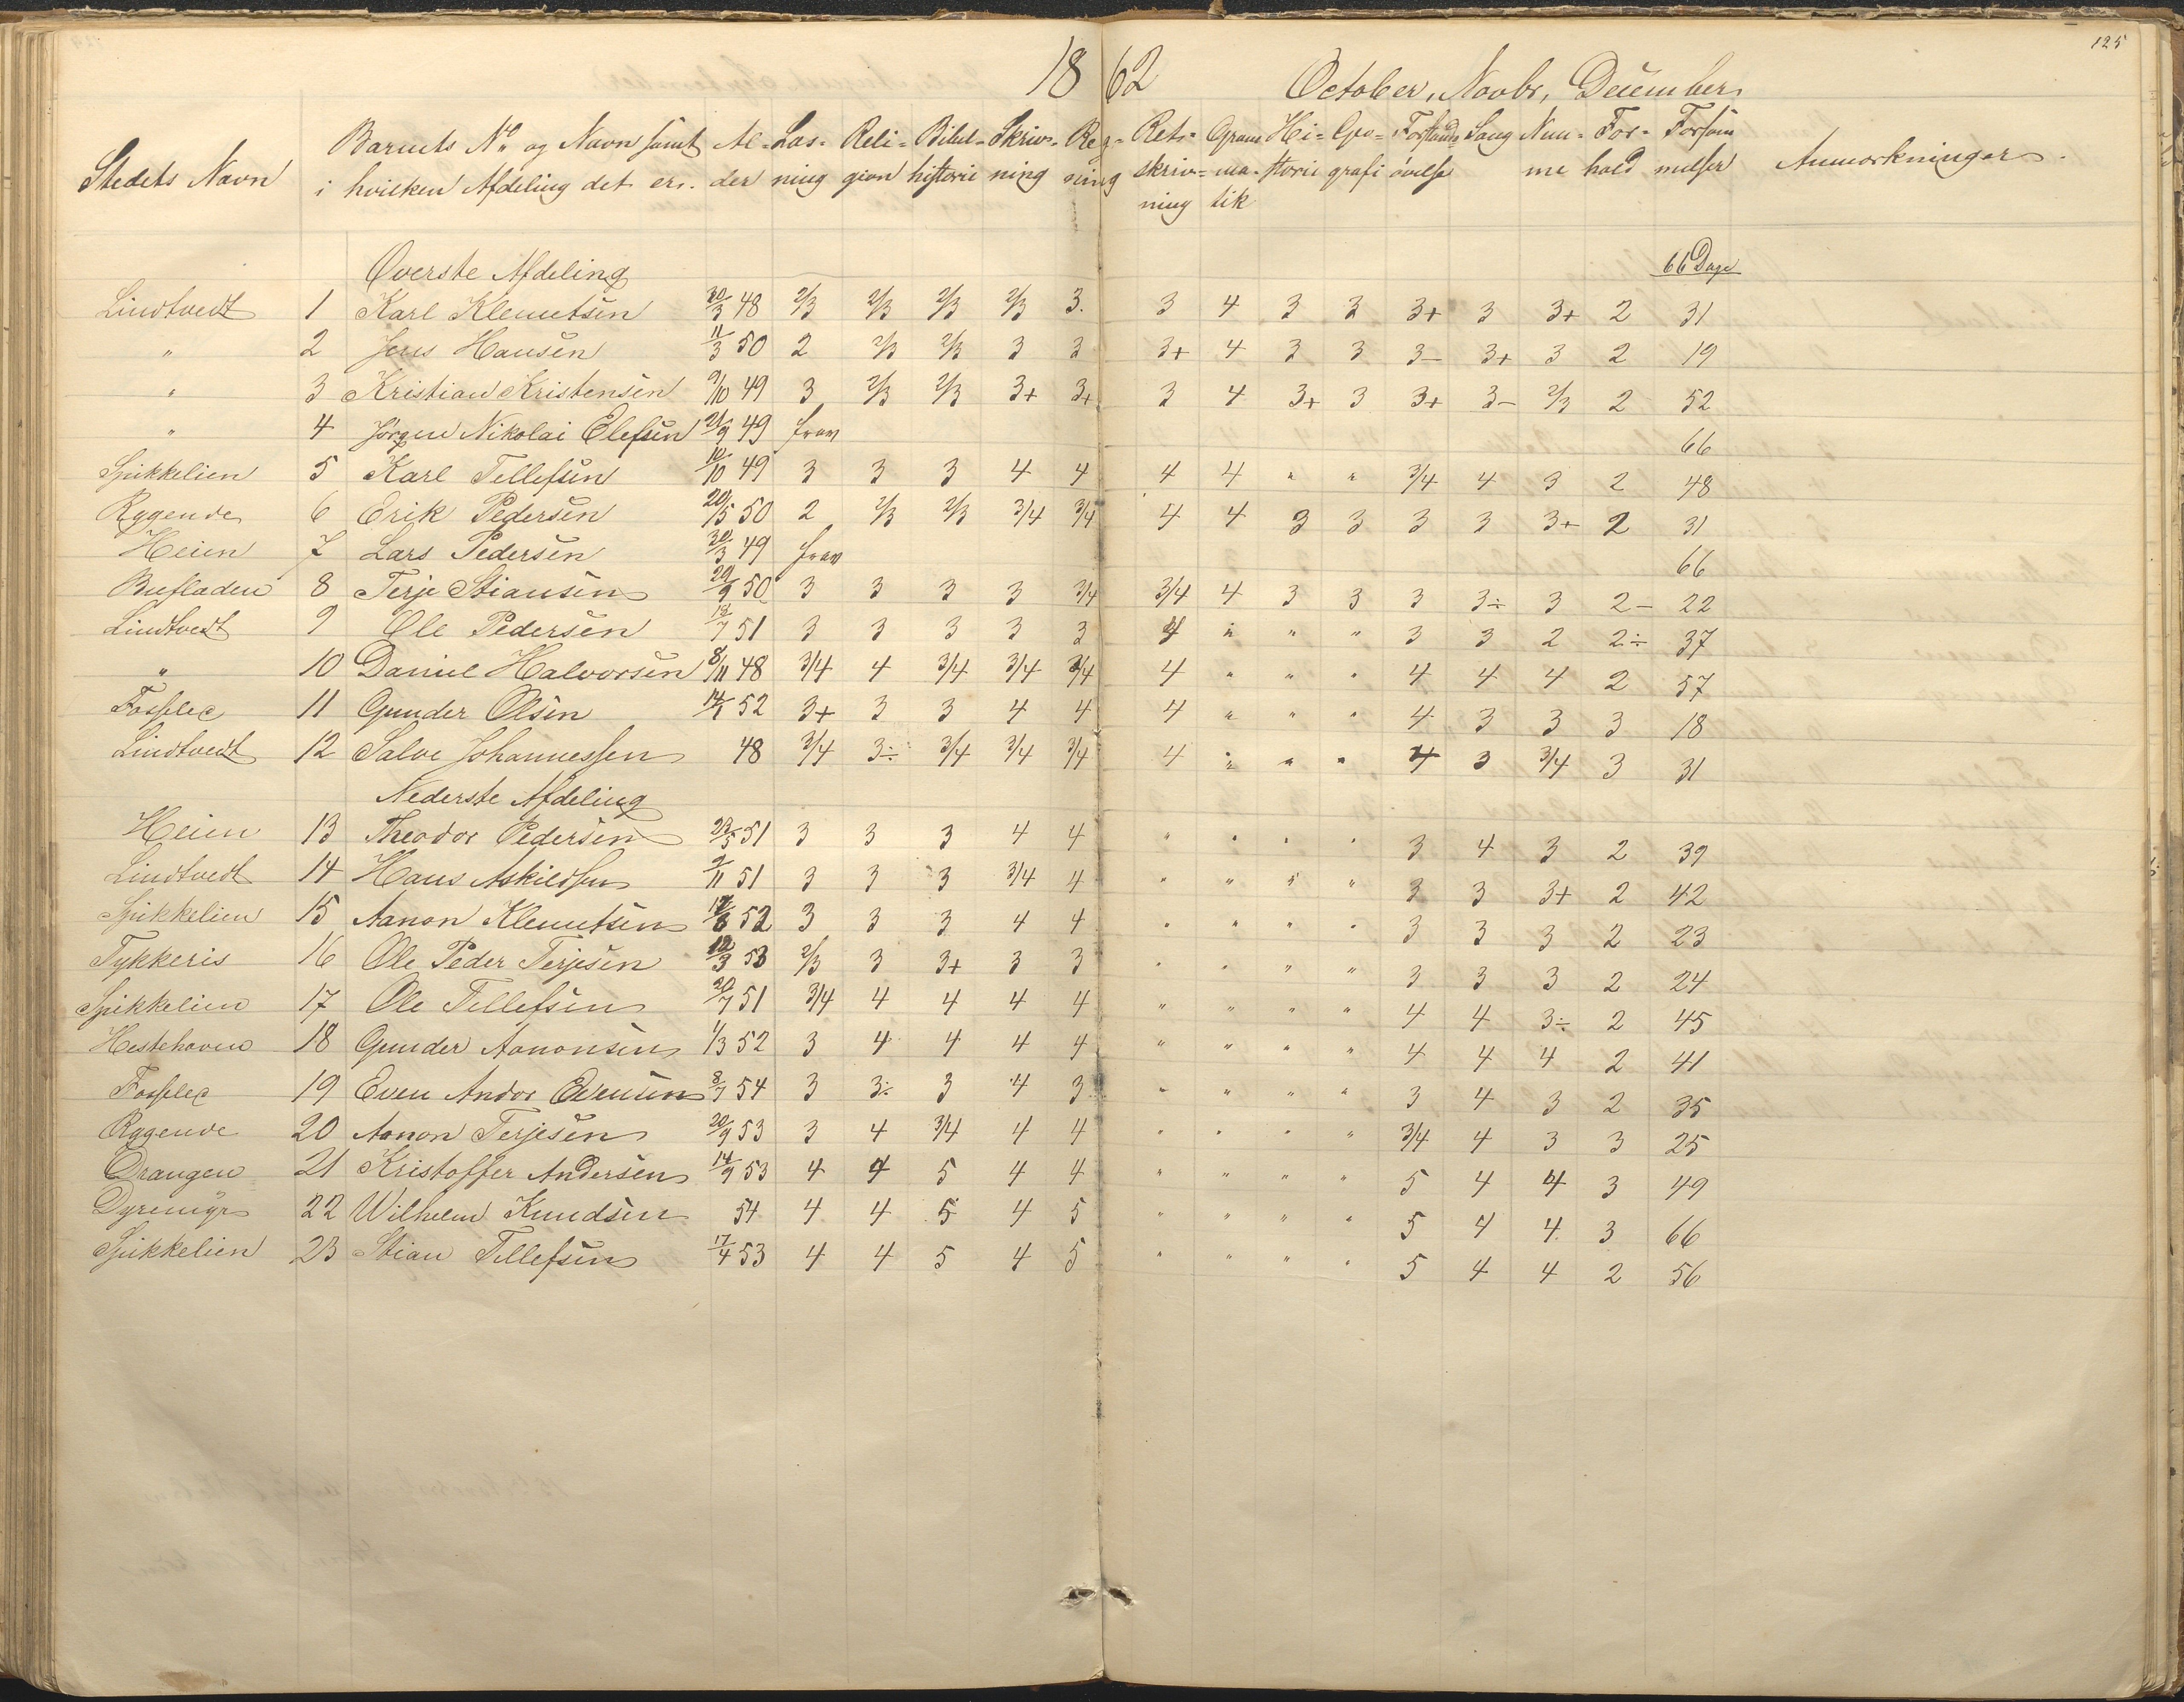 125
1862 October, Novbr, December
Stedets Navn | Barnets No og Navn samt i hvilken Afdeling det er. | Al-der | Læs-ning | Reli-gion | Bibel-historie | Skriv-ning | Reg-ning | Ret-skriv-ning | Gram-ma-tik | Hi-storie | Geo-grafi | Forstands øvelse | Sang | Nem-me | For-hold | Forsøm melser | Anmærkninger.
Øverste Afdeling 66 Dage
Lindtvedt 1 Karl Klemetsen 30/3 48 2/3 2/3 2/3 2/3 3. 3 4 3 3 3+ 3 3+ 2 31
" 2 Jens Hansen 11/3 50 2 2/3 2/3 3 3 3+ 4 3 3 3- 3+ 3 2 19
" 3 Kristian Kristensen 9/10 49 3 2/3 2/3 3+ 3+ 3 4 3+ 3 3+ 3- 2/3 2 52
" 4 Jørgen Nikolai Elefsen 21/9 49 frav 66
Spikkelien 5 Karl Tellefsen 10/10 49 3 3 3 4 4 4 4 " " 3/4 4 3 2 48
Rggende 6 Erik Pedersen 20/5 50 2 2/3 2/3 3/4 3/4 4 4 3 3 3 3 3+ 2 31
Heien 7 Lars Pedersen 30/3 49 frav 66
Buefladen 8 Terje Stiansen 29/9 50 3 3 3 3 3/4 3/4 4 3 3 3 3÷ 3 2- 22
Lindtvedt 9 Ole Pedersen 18/7 51 3 3 3 3 3 4 " " " 3 3 2 2÷ 37
" 10 Daniel Halvorsen 8/11 48 3/4 4 3/4 3/4 3/4 4 " " " 4 4 4 2 57
Fosselie 11 Gunder Olsen 14/1 52 3+ 3 3 4 4 4 " " " 4 3 3 3 18
Lindtvedt 12 Salve Johannessen 48 3/4 3÷ 3/4 3/4 3/4 4 " " " 4 3 3/4 3 31
Nederste Afdeling
Heien 13 Theodor Pedersen 23/5 51 3 3 3 4 4 " " " " 3 4 3 2 39
Lindtvedt 14 Hans Askildsen 9/11 51 3 3 3 3/4 4 " " " " 3 3 3+ 2 42
Spikkelien 15 Aanon Klemetsen 17/8 52 3 3 3 4 4 " " " " 3 3 3 2 23
Tykkeris 16 Ole Peder Terjesen 12/3 53 2/3 3 3+ 3 3 " " " " 3 3 3 2 24
Spikkelien 17 Ole Tellefsen 20/7 51 3/4 4 4 4 4 " " " " 4 4 3÷ 2 45
Hestehaven 18 Gunder Aanonsen 1/3 52 3 4 4 4 4 " " " " 4 4 4 2 41
Fosselie 19 Even Andor Evensen 8/7 54 3 3÷ 3 4 3 " " " " 3 4 3 2 35
Rggende 20 Aanon Terjesen 20/9 53 3 4 3/4 4 4 " " " " 3/4 4 3 3 25
Drangen 21 Kristoffer Andersen 14/9 53 4 4 5 4 4 " " " " 5 4 4 3 49
Dyremyr 22 Wilhelm Knudsen 54 4 4 5 4 5 " " " " 5 4 4 3 66
Spikkelien 23 Stian Tellefsen 17/4 53 4 4 5 4 5 " " " " 5 4 4 2 56